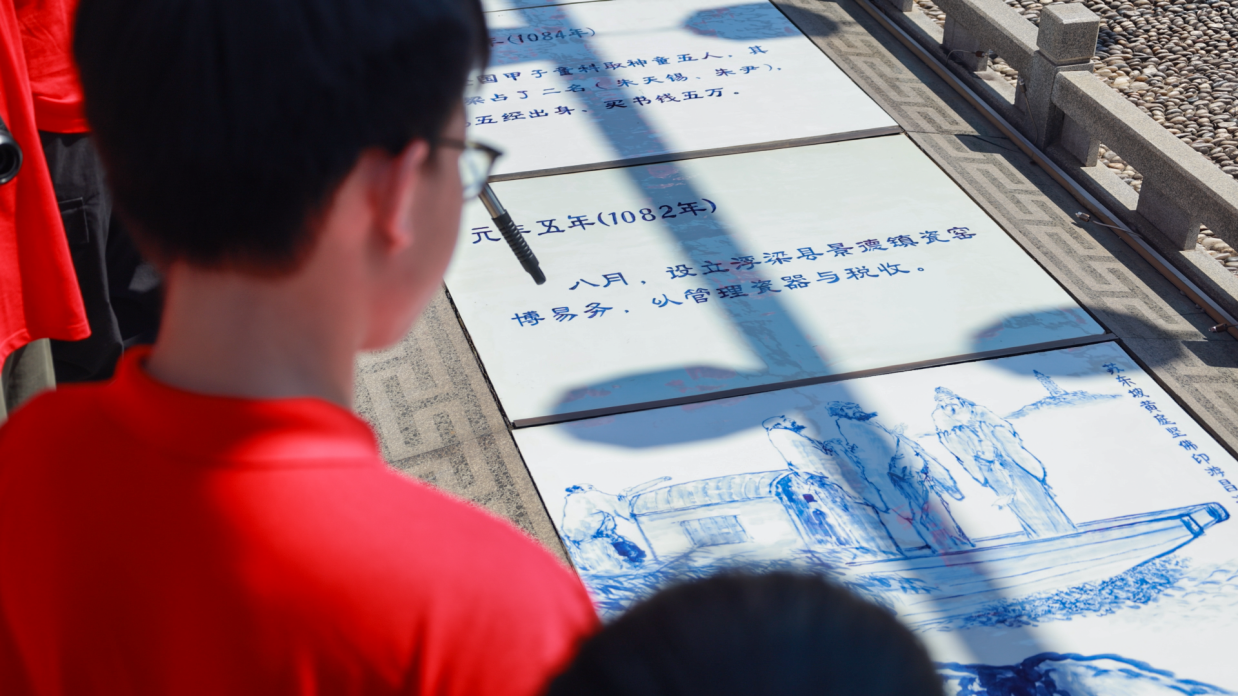 年(1084年)
国甲子童科取神童五人，其
梁占了二名(朱天锡、朱尹)，
五经出身，买书钱五万。
元丰五年(1082年)
八月，设立浮梁县景德镇瓷窑
博易务，以管理瓷器与税收。
苏东坡黄庭坚佛印游昌